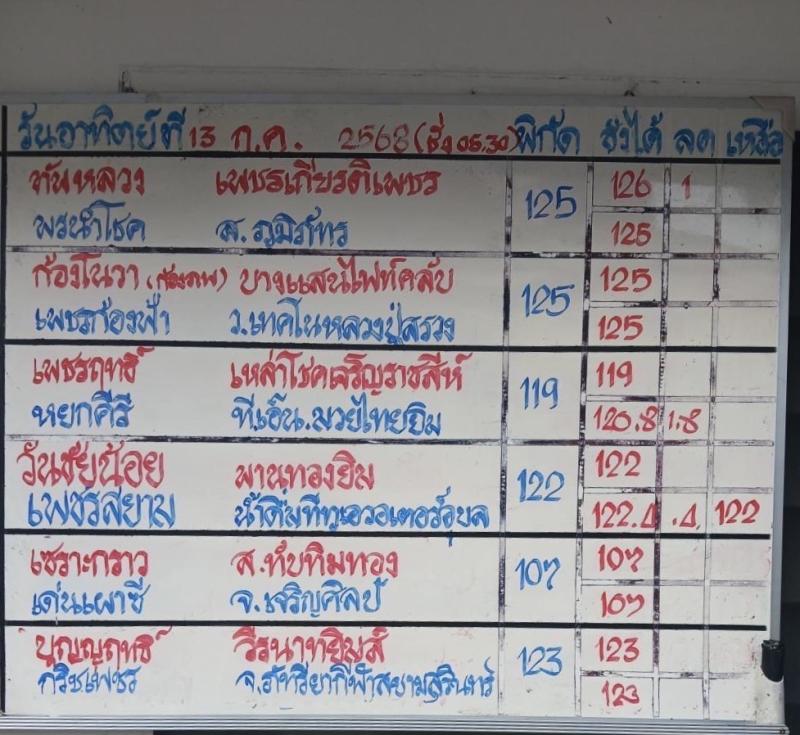 วันอาทิตย์ที่ 13 ก.ค. 2568 (ชั่ง 05.30) พิกัด ชั่งได้ ลด เหลือ
ทันหลวง เพชรเกียรติเพชร 125 126 1
พรนำโชค ส.ภูมิภัทร 125
ก้องโนวา (ก้องภพ) บางแสนไฟท์คลับ 125 125
เพชรก้องฟ้า ว.เทคโนหลวงปู่สรวง 125
เพชรฤทธิ์ เหล่าโชคเจริญราชสีห์ 119 119
หยกศิรี ที.เอ็น.มวยไทยยิม 120.8 1.8
วันชัยน้อย พานทองยิม 122 122
เพชรสยาม น้ำดื่มทีทูเอวอเตอร์อุบล 122.4 .4 122
เซราะกราว ส.ทับทิมทอง 107 107
เด่นเผาซี จ.เจริญศิลป์ 107
บุญญฤทธิ์ วีรนาทยิมส์ 123 123
กริชเพชร 123